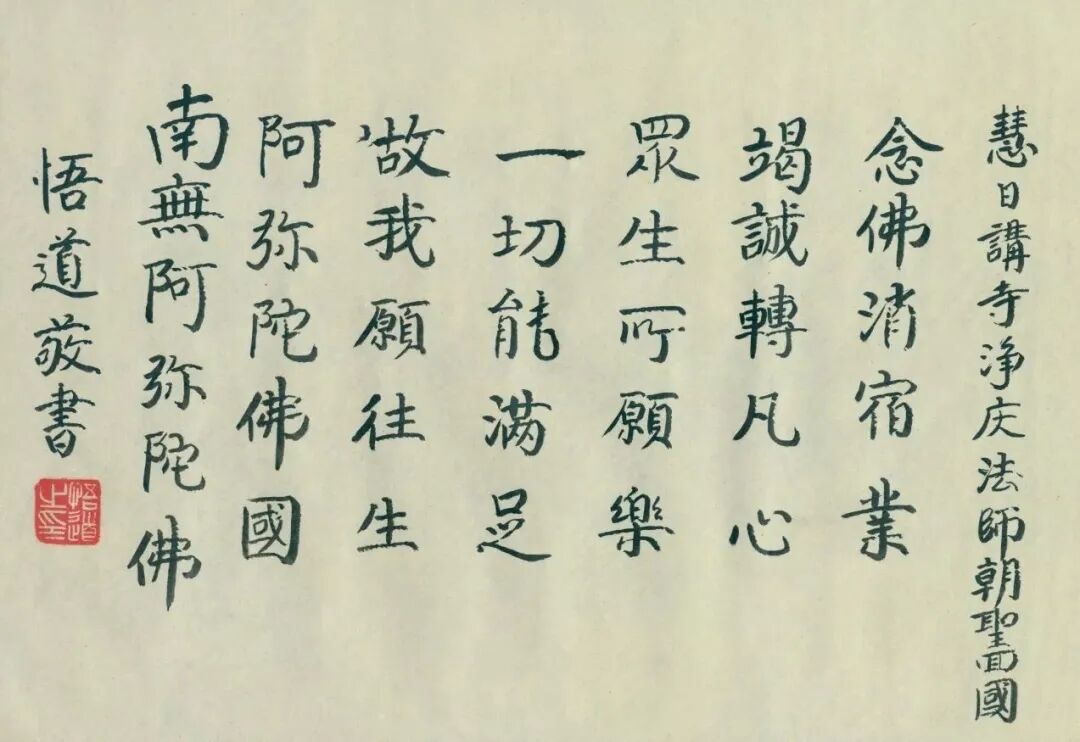 慧日講寺浄庆法師朝聖四國
念佛消宿業
竭誠轉凡心
眾生所願樂
一切能滿足
做我願往生
阿弥陀佛國
南無阿弥陀佛
悟道敬書
悟道之印